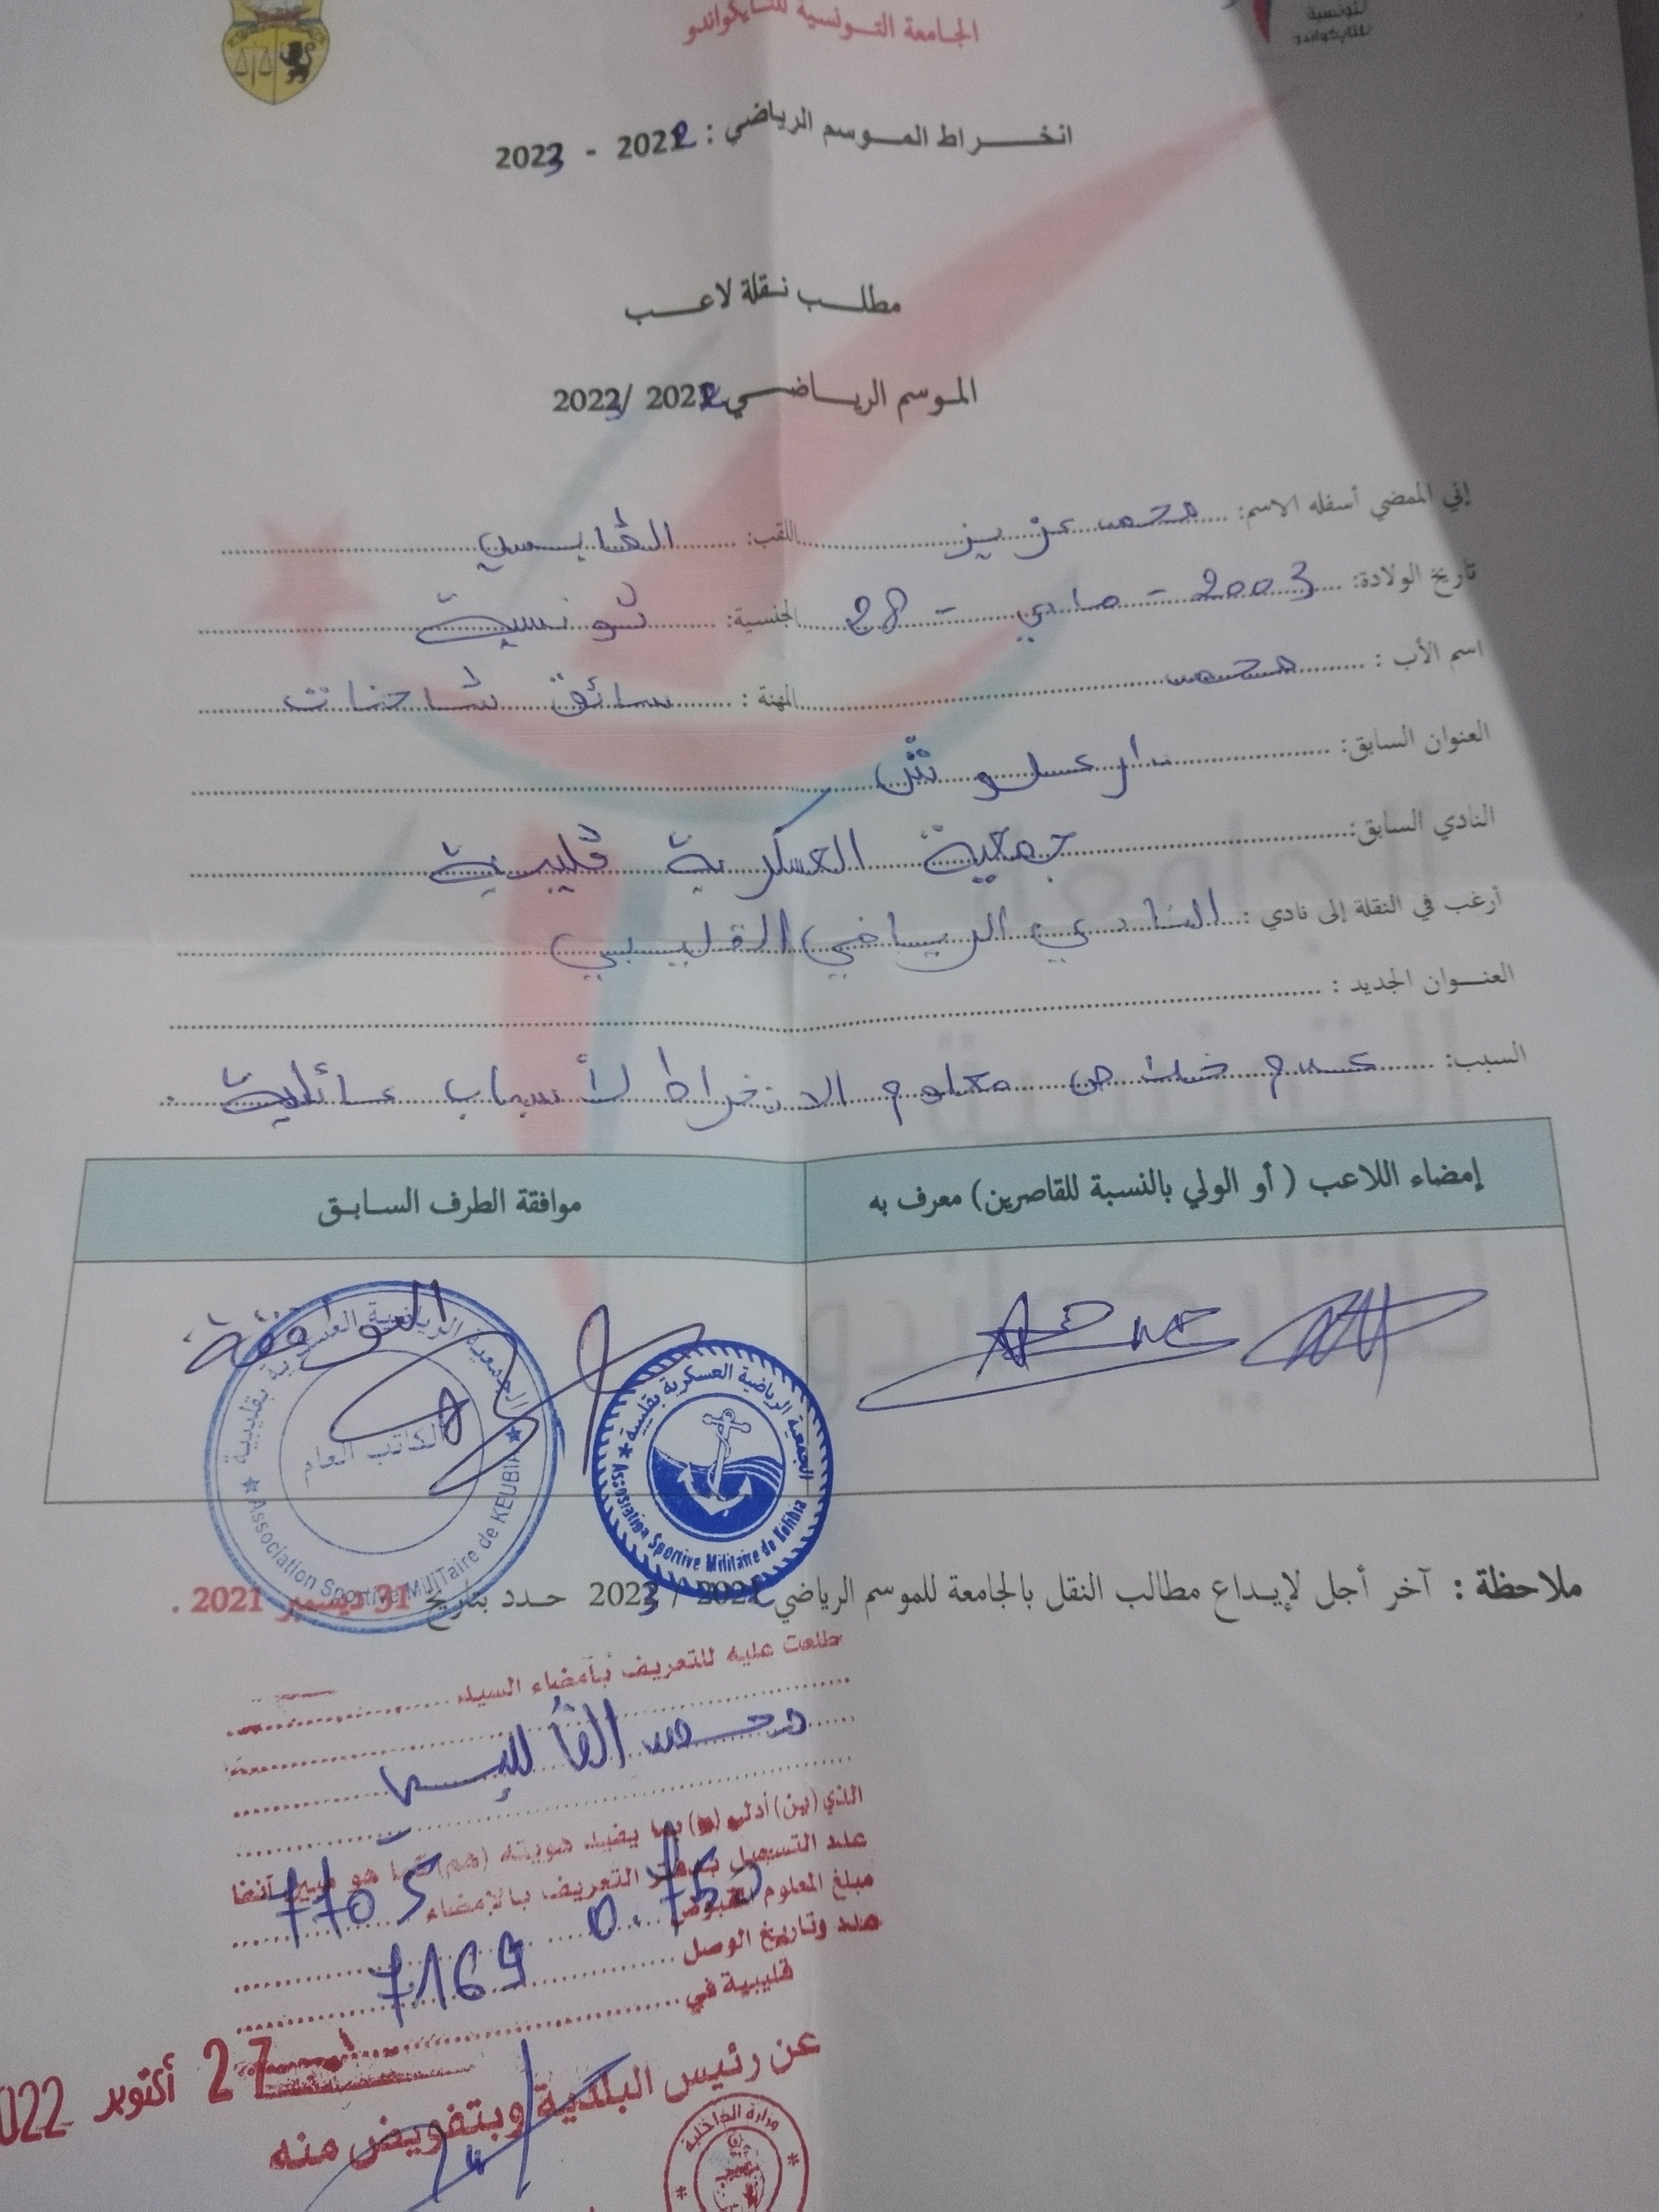 الجامعة التونسية للتايكواندو
التونسية
للتايكواندو
انخراط الموسم الرياضي : 2022 - 2023
مطلب نقلة لاعب
الموسم الرياضي 2022 /2023
إني الممضي أسفله الاسم: محمد عزيز اللقب: القابسي
تاريخ الولادة: 28 - ماي - 2003 الجنسية: تونسية
اسم الأب : محمد المهنة : سائق شاحنات
العنوان السابق: دار علوش
النادي السابق: جمعية العسكرية قليبية
أرغب في النقلة إلى نادي : النادي الرياضي القليبي
العنوان الجديد :
السبب: عدم خلاص معلوم الانخراط لأسباب عائلية .
إمضاء اللاعب ( أو الولي بالنسبة للقاصرين) معرف به
موافقة الطرف السابق
الموافقة
الجمعية الرياضية العسكرية بقليبية
الكاتب العام
Association Sportive MiliTaire de KELIBIA
الجمعية الرياضية العسكرية بقليبية
Association Sportive Militaire de Kelibia
ملاحظة : آخر أجل لإيداع مطالب النقل بالجامعة للموسم الرياضي 2022 / 2023 حدد بتاريخ 31 ديسمبر 2021 .
طلعت عليه للتعريف بإمضاء السيد
محمد القابسي
الذي (ين) أدلى (وا) بما يفيد هويته (هم) كما هو مبين آنفا
عدد التسجيل بدفتر التعريف بالإمضاء 7705
مبلغ المعلوم المقبوض
عدد وتاريخ الوصل 7169
قليبية في
27 أكتوبر 022
عن رئيس البلدية وبتفويض منه
وزارة الداخلية